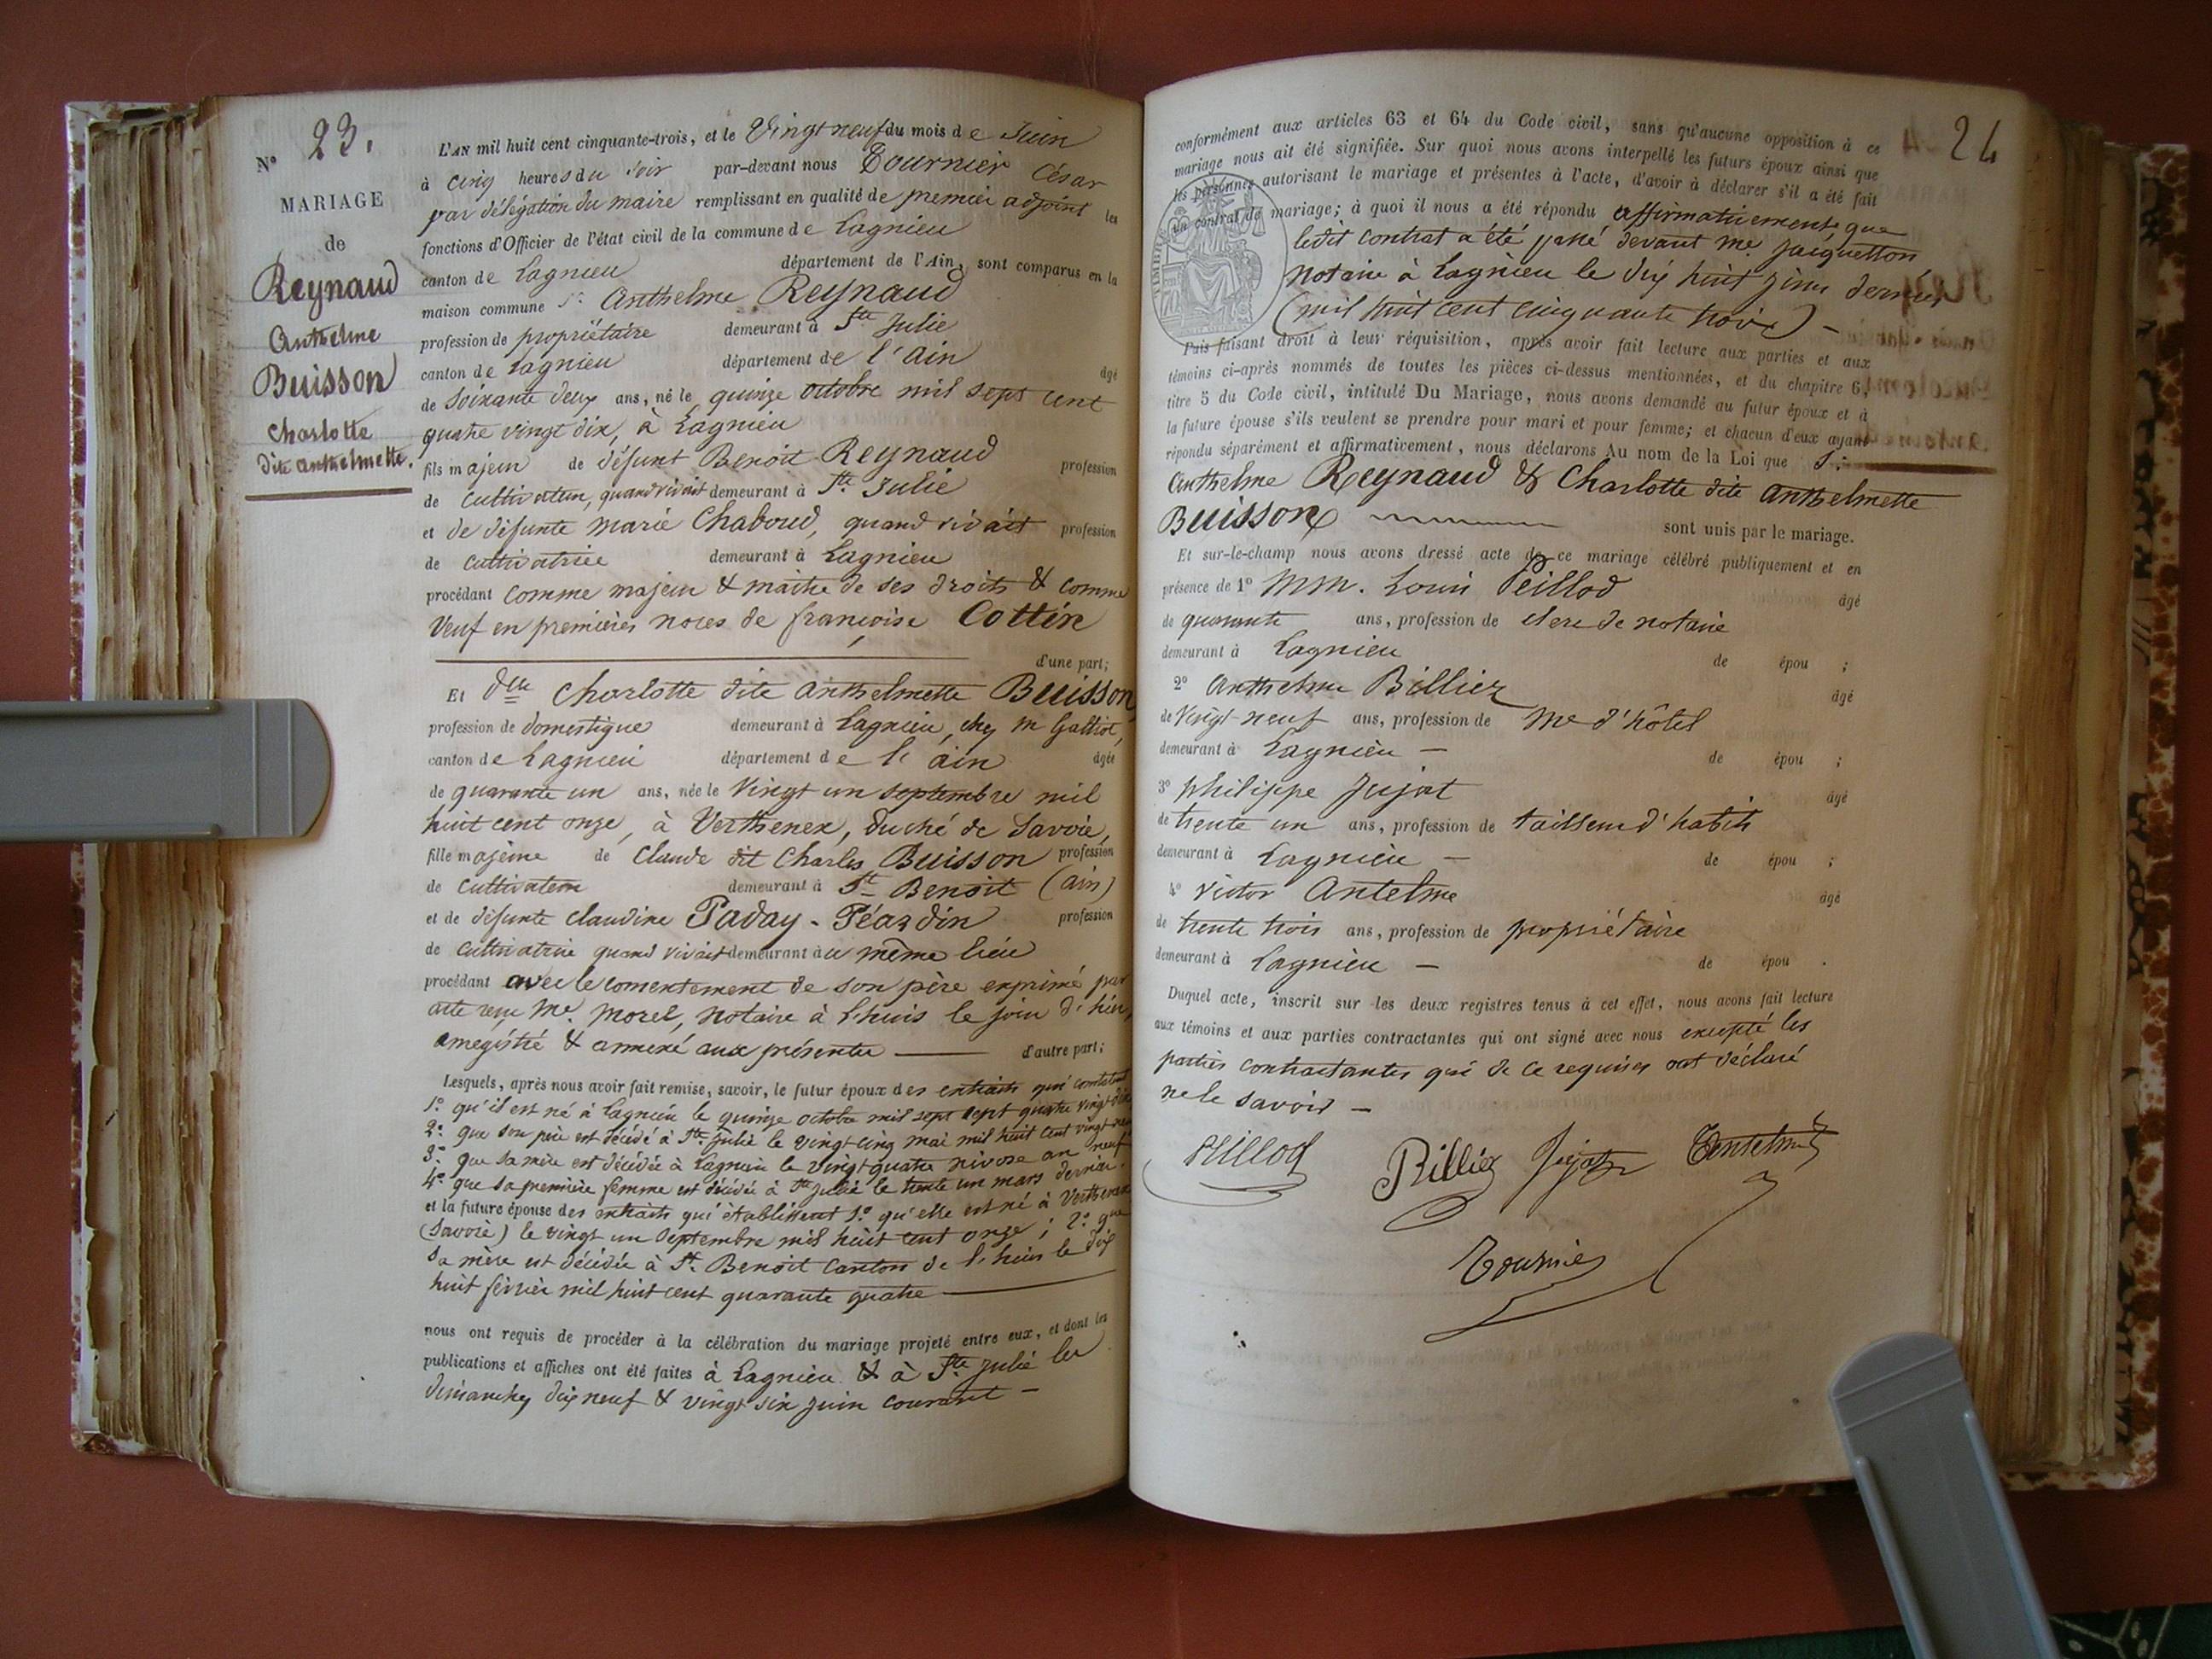 N° 23.
MARIAGE
de
Reynaud
Anthelme
Buisson
Charlotte
dite anthelmette.
L'AN mil huit cent cinquante-trois, et le Vingt neuf du mois de Juin
à cinq heures du soir par-devant nous Tournier César
par délégation du maire remplissant en qualité de premier adjoint les
fonctions d'Officier de l'état civil de la commune de Lagnieu
canton de Lagnieu département de l'Ain, sont comparus en la
maison commune Sr. Anthelme Reynaud
profession de propriétaire demeurant à Ste Julie
canton de Lagnieu département de l'ain âgé
de soixante deux ans, né le quinze octobre mil sept cent
quatre vingt dix, à Lagnieu
fils majeur de défunt Benoit Reynaud profession
de cultivateur, quand vivait demeurant à Ste Julie
et de défunte marie Chaboud, quand vivait profession
de cultivatrice demeurant à Lagnieu
procédant comme majeur & maitre de ses droits & comme
Veuf en premières noces de françoise Cottin
d'une part;
Et dlle Charlotte dite anthelmette Buisson
profession de domestique demeurant à Lagnieu, chez m Galliot,
canton de Lagnieu département de l'ain âgée
de quarante un ans, née le Vingt un septembre mil
huit cent onze, à Verthenex, Duché de Savoie,
fille majeure de Claude dit Charles Buisson profession
de cultivateur demeurant à St Benoit (ain)
et de défunte claudine Paday-Péardin profession
de cultivatrice quand vivait demeurant au même lieu
procédant avec le consentement de son père exprimé par
acte reçu Me. Morel, notaire à l'huis le jour d'hier,
enregistré & annexé aux présentes d'autre part;
Lesquels, après nous avoir fait remise, savoir, le futur époux des extraits qui constatent
1°. qu'il est né à Lagnieu le quinze octobre mil sept sept quatre vingt dix
2°. que son père est décédé à Ste. Julie le vingt cinq mai mil huit cent vingt
3°. que sa mère est décédée à Lagnieu le vingt quatre nivose an neuf
4°. que sa première femme est décédée à Ste Julie le trente un mars dernier.
et la future épouse des extraits qui établissent 1°. qu'elle est né à Verthenex
(Savoie) le vingt un Septembre mil huit cent onze; 2°. que
sa mère est décédée à St. Benoit canton de l'huis le dix
huit février mil huit cent quarante quatre
nous ont requis de procéder à la célébration du mariage projeté entre eux, et dont les
publications et affiches ont été faites à Lagnieu & à Ste Julie les
dimanches dix neuf & vingt six juin courant -
24
conformément aux articles 63 et 64 du Code civil, sans qu'aucune opposition à ce
mariage nous ait été signifiée. Sur quoi nous avons interpellé les futurs époux ainsi que
les personnes autorisant le mariage et présentes à l'acte, d'avoir à déclarer s'il a été fait
un contrat de mariage; à quoi il nous a été répondu affirmativement que
ledit contrat a été passé devant me Jacquetton
notaire à Lagnieu le dix huit juin dernier
(mil huit cent cinquante trois) -
Puis faisant droit à leur réquisition, après avoir fait lecture aux parties et aux
témoins ci-après nommés de toutes les pièces ci-dessus mentionnées, et du chapitre 6,
titre 5 du Code civil, intitulé Du Mariage, nous avons demandé au futur époux et à
la future épouse s'ils veulent se prendre pour mari et pour femme; et chacun d'eux ayant
répondu séparément et affirmativement, nous déclarons Au nom de la Loi que Sr.
Anthelme Reynaud & Charlotte dite Anthelmette
Buisson sont unis par le mariage.
Et sur-le-champ nous avons dressé acte de ce mariage célébré publiquement et en
présence de 1° MM. Louis Peillod âgé
de quarante ans, profession de clerc de notaire
demeurant à Lagnieu de épou ;
2° Anthelme Billiez âgé
de vingt-neuf ans, profession de Me d'hôtel
demeurant à Lagnieu - de épou ;
3° Philippe Jujat âgé
de trente un ans, profession de tailleur d'habits
demeurant à Lagnieu - de épou ;
4° Victor Antelme âgé
de trente trois ans, profession de propriétaire
demeurant à Lagnieu - de épou .
Duquel acte, inscrit sur les deux registres tenus à cet effet, nous avons fait lecture
aux témoins et aux parties contractantes qui ont signé avec nous excepté les
parties contractantes qui de ce requises ont déclaré
ne le savoir -
Peillod Billiez Jujat Antelme
Tournier